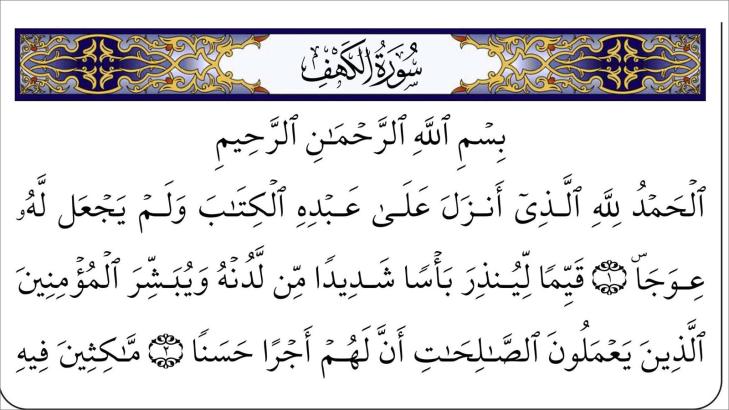 سُورَةُ الكَهْفِ
بِسْمِ ٱللَّهِ ٱلرَّحْمَـٰنِ ٱلرَّحِيمِ
ٱلْحَمْدُ لِلَّهِ ٱلَّذِىٓ أَنزَلَ عَلَىٰ عَبْدِهِ ٱلْكِتَـٰبَ وَلَمْ يَجْعَل لَّهُۥ
عِوَجَاۜ ١ قَيِّمًا لِّيُنذِرَ بَأْسًا شَدِيدًا مِّن لَّدُنْهُ وَيُبَشِّرَ ٱلْمُؤْمِنِينَ
ٱلَّذِينَ يَعْمَلُونَ ٱلصَّـٰلِحَـٰتِ أَنَّ لَهُمْ أَجْرًا حَسَنًا ٢ مَّـٰكِثِينَ فِيهِ